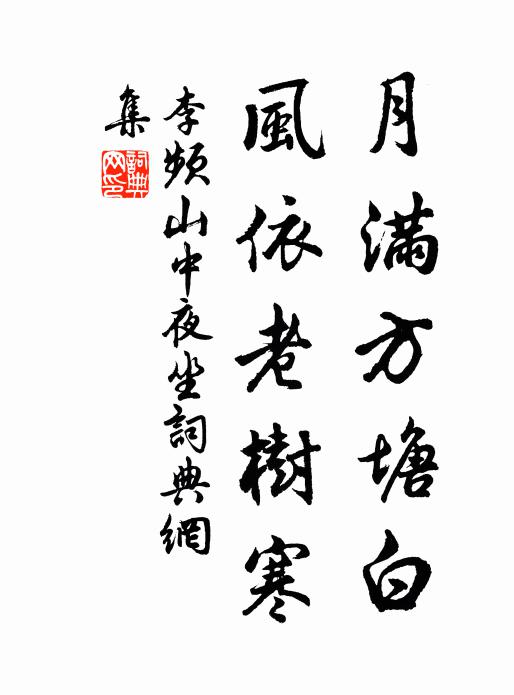 月滿方塘白
風依老樹寒
李頻山中夜坐詞典網
集
詞典
网印